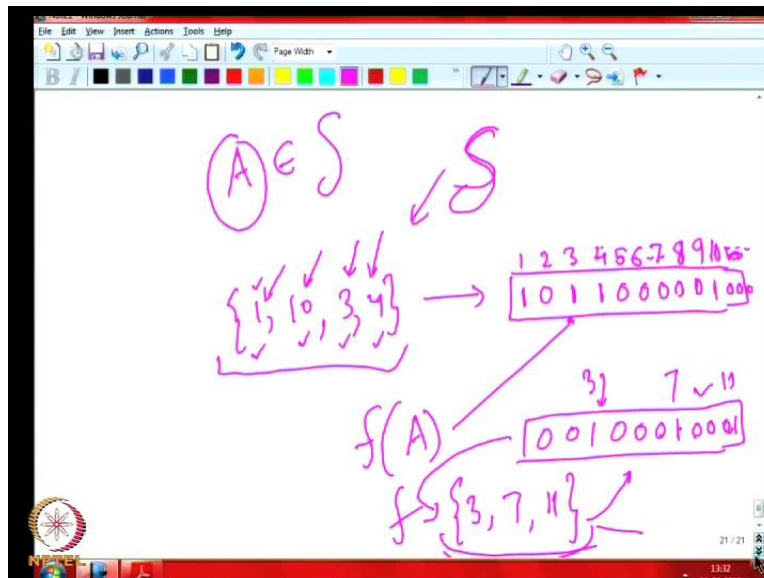 File Edit View Insert Actions Tools Help
Page Width
B I
A ∈ S S
1 2 3 4 5 6 7 8 9 10
{1, 10, 3, 4} → 1 0 1 1 0 0 0 0 0 1 0 0 0
3 7 11
f(A) 0 0 1 0 0 0 1 0 0 0 1
f {3, 7, 11}
21 / 21
NPTEL
13:32